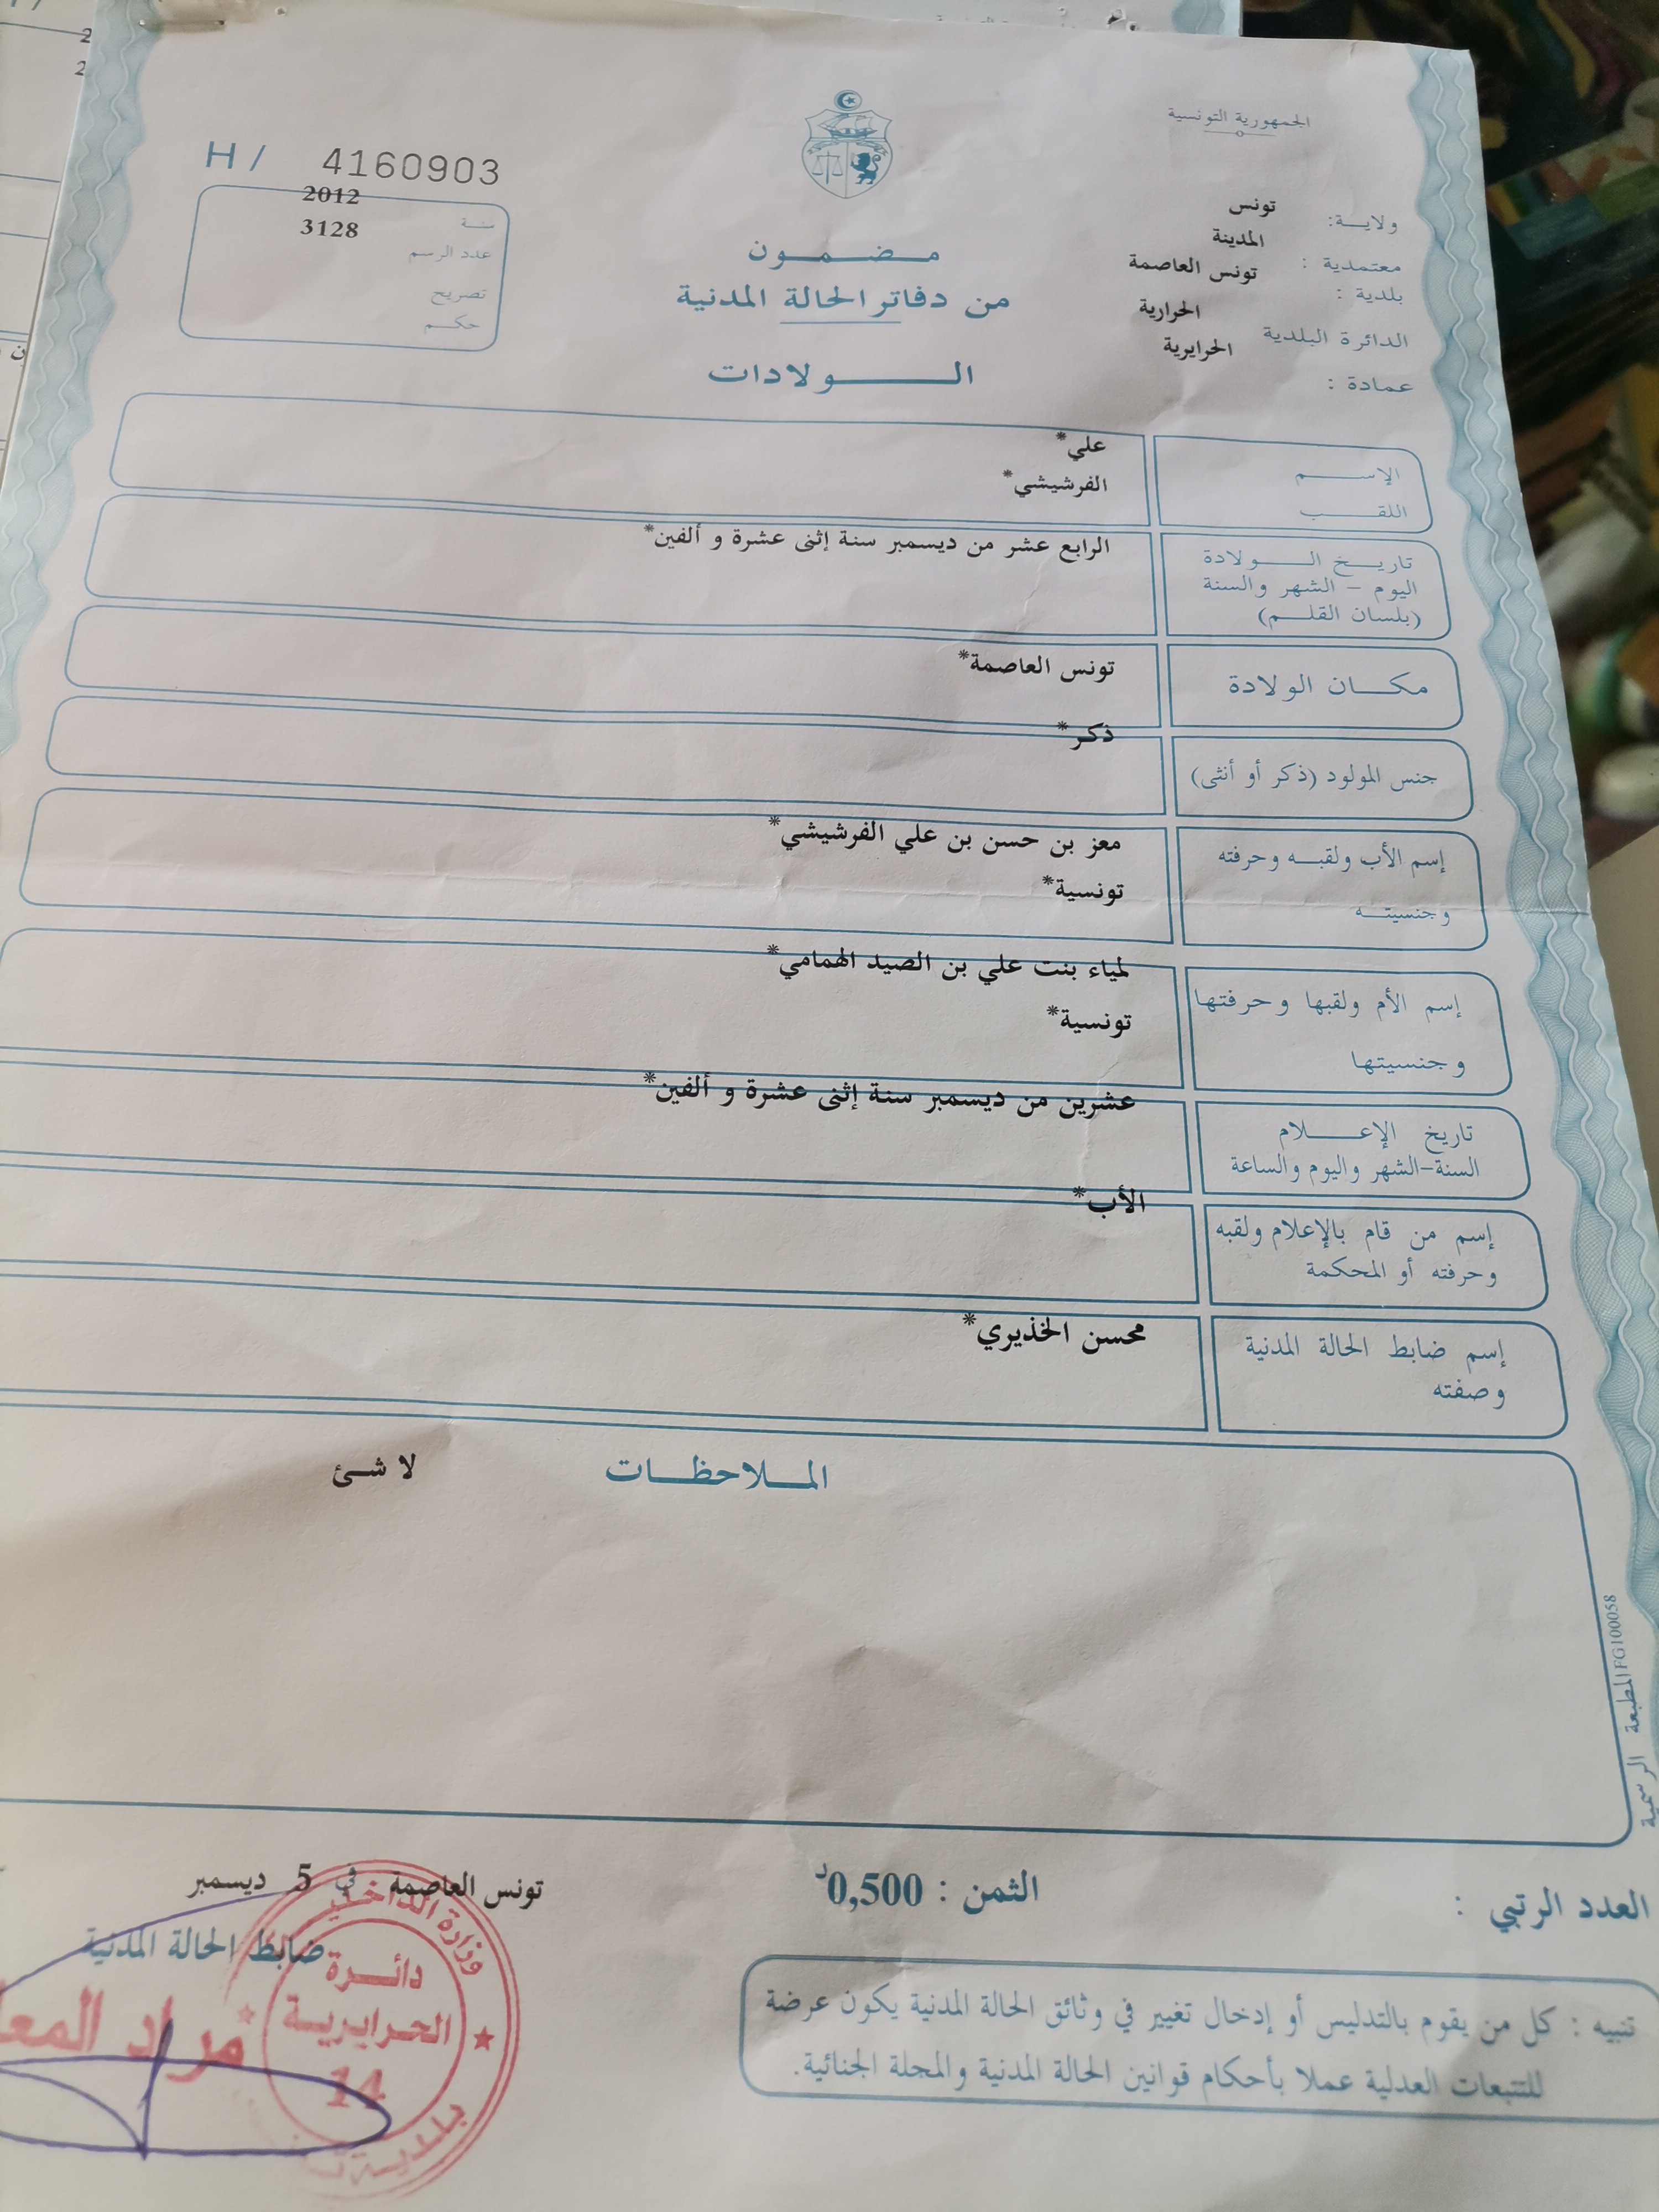 الجمهورية التونسية
H / 4160903
ولايـــة: تونس
معتمدية : المدينة
بلدية : تونس العاصمة
الدائرة البلدية الحرارية
عمادة : الحرايرية
سنـة 2012
عدد الرسم 3128
تصريح
حكـم
مـضـمـون
من دفاتر الحالة المدنية
الـولادات
الإســـم علي*
اللقـــب الفرشيشي*
تاريـخ الــولادة الرابع عشر من ديسمبر سنة إثنى عشرة و ألفين*
اليوم - الشهر والسنة
(بلسان القلــم)
مكــان الولادة تونس العاصمة*
جنس المولود (ذكر أو أنثى) ذكر*
إسم الأب ولقبـه وحرفته معز بن حسن بن علي الفرشيشي*
وجنسيتـه تونسية*
إسم الأم ولقبها وحرفتها لمياء بنت علي بن الصيد الهمامي*
وجنسيتها تونسية*
تاريخ الإعــلام عشرين من ديسمبر سنة إثنى عشرة و ألفين*
السنة-الشهر واليوم والساعة
إسم من قام بالإعلام ولقبه الأب*
وحرفته أو المحكمة
إسم ضابط الحالة المدنية محسن الخذيري*
وصفته
المـلاحظـات لا شئ
المطبعة الرسمية FG100058
العدد الرتبي :
الثمن : 0,500د
تونس العاصمة في 5 ديسمبر
ضابط الحالة المدنية
وزارة الداخلية
دائـرة
الحرايرية
14
بلدية
مراد
تنبيه : كل من يقوم بالتدليس أو إدخال تغيير في وثائق الحالة المدنية يكون عرضة
للتتبعات العدلية عملا بأحكام قوانين الحالة المدنية والمجلة الجنائية.